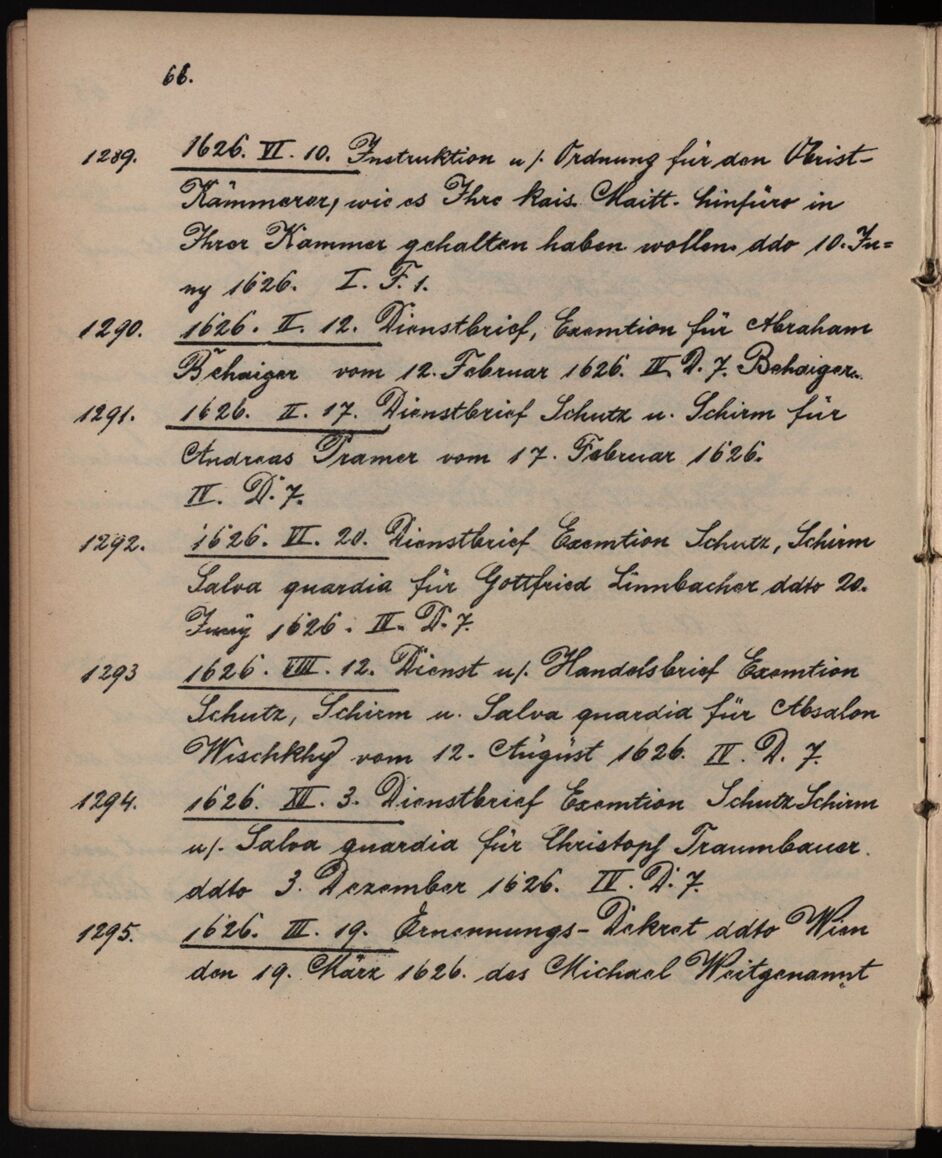 66.
1289. 1626. VI. 10. Instruktion u/. Ordnung für den Obrist-
Kämmerer, wie es Ihre kais. Maitt. hinfüro in
Ihrer Kammer gehalten haben wollen. ddo 10. Ju=
ny 1626. I. F. 1.
1290. 1626. II. 12. Dienstbrief, Exemtion für Abraham
Behaiger vom 12. Februar 1626. IV. D. 7. Behaiger.
1291. 1626. II. 17. Dienstbrief Schutz u. Schirm für
Andreas Pramer vom 17. Februar 1626.
IV. D. 7.
1292. 1626. VI. 20. Dienstbrief Exemtion Schutz, Schirm
Salva guardia für Gottfried Linnbacher ddto 20.
Juny 1626. IV. D. 7.
1293 1626. VIII. 12. Dienst u/. Handelsbrief Exemtion
Schutz, Schirm u. Salva guardia für Absalon
Wischkhy vom 12. August 1626. IV. D. 7.
1294. 1626. XII. 3. Dienstbrief Exemtion Schutz Schirm
u/. Salva guardia für Christopf Traumbauer.
ddto 3. Dezember 1626. IV. D. 7.
1295. 1626. III. 19. Ernennungs-Dekret ddto Wien
den 19. März 1626. des Michael Weitgenannt